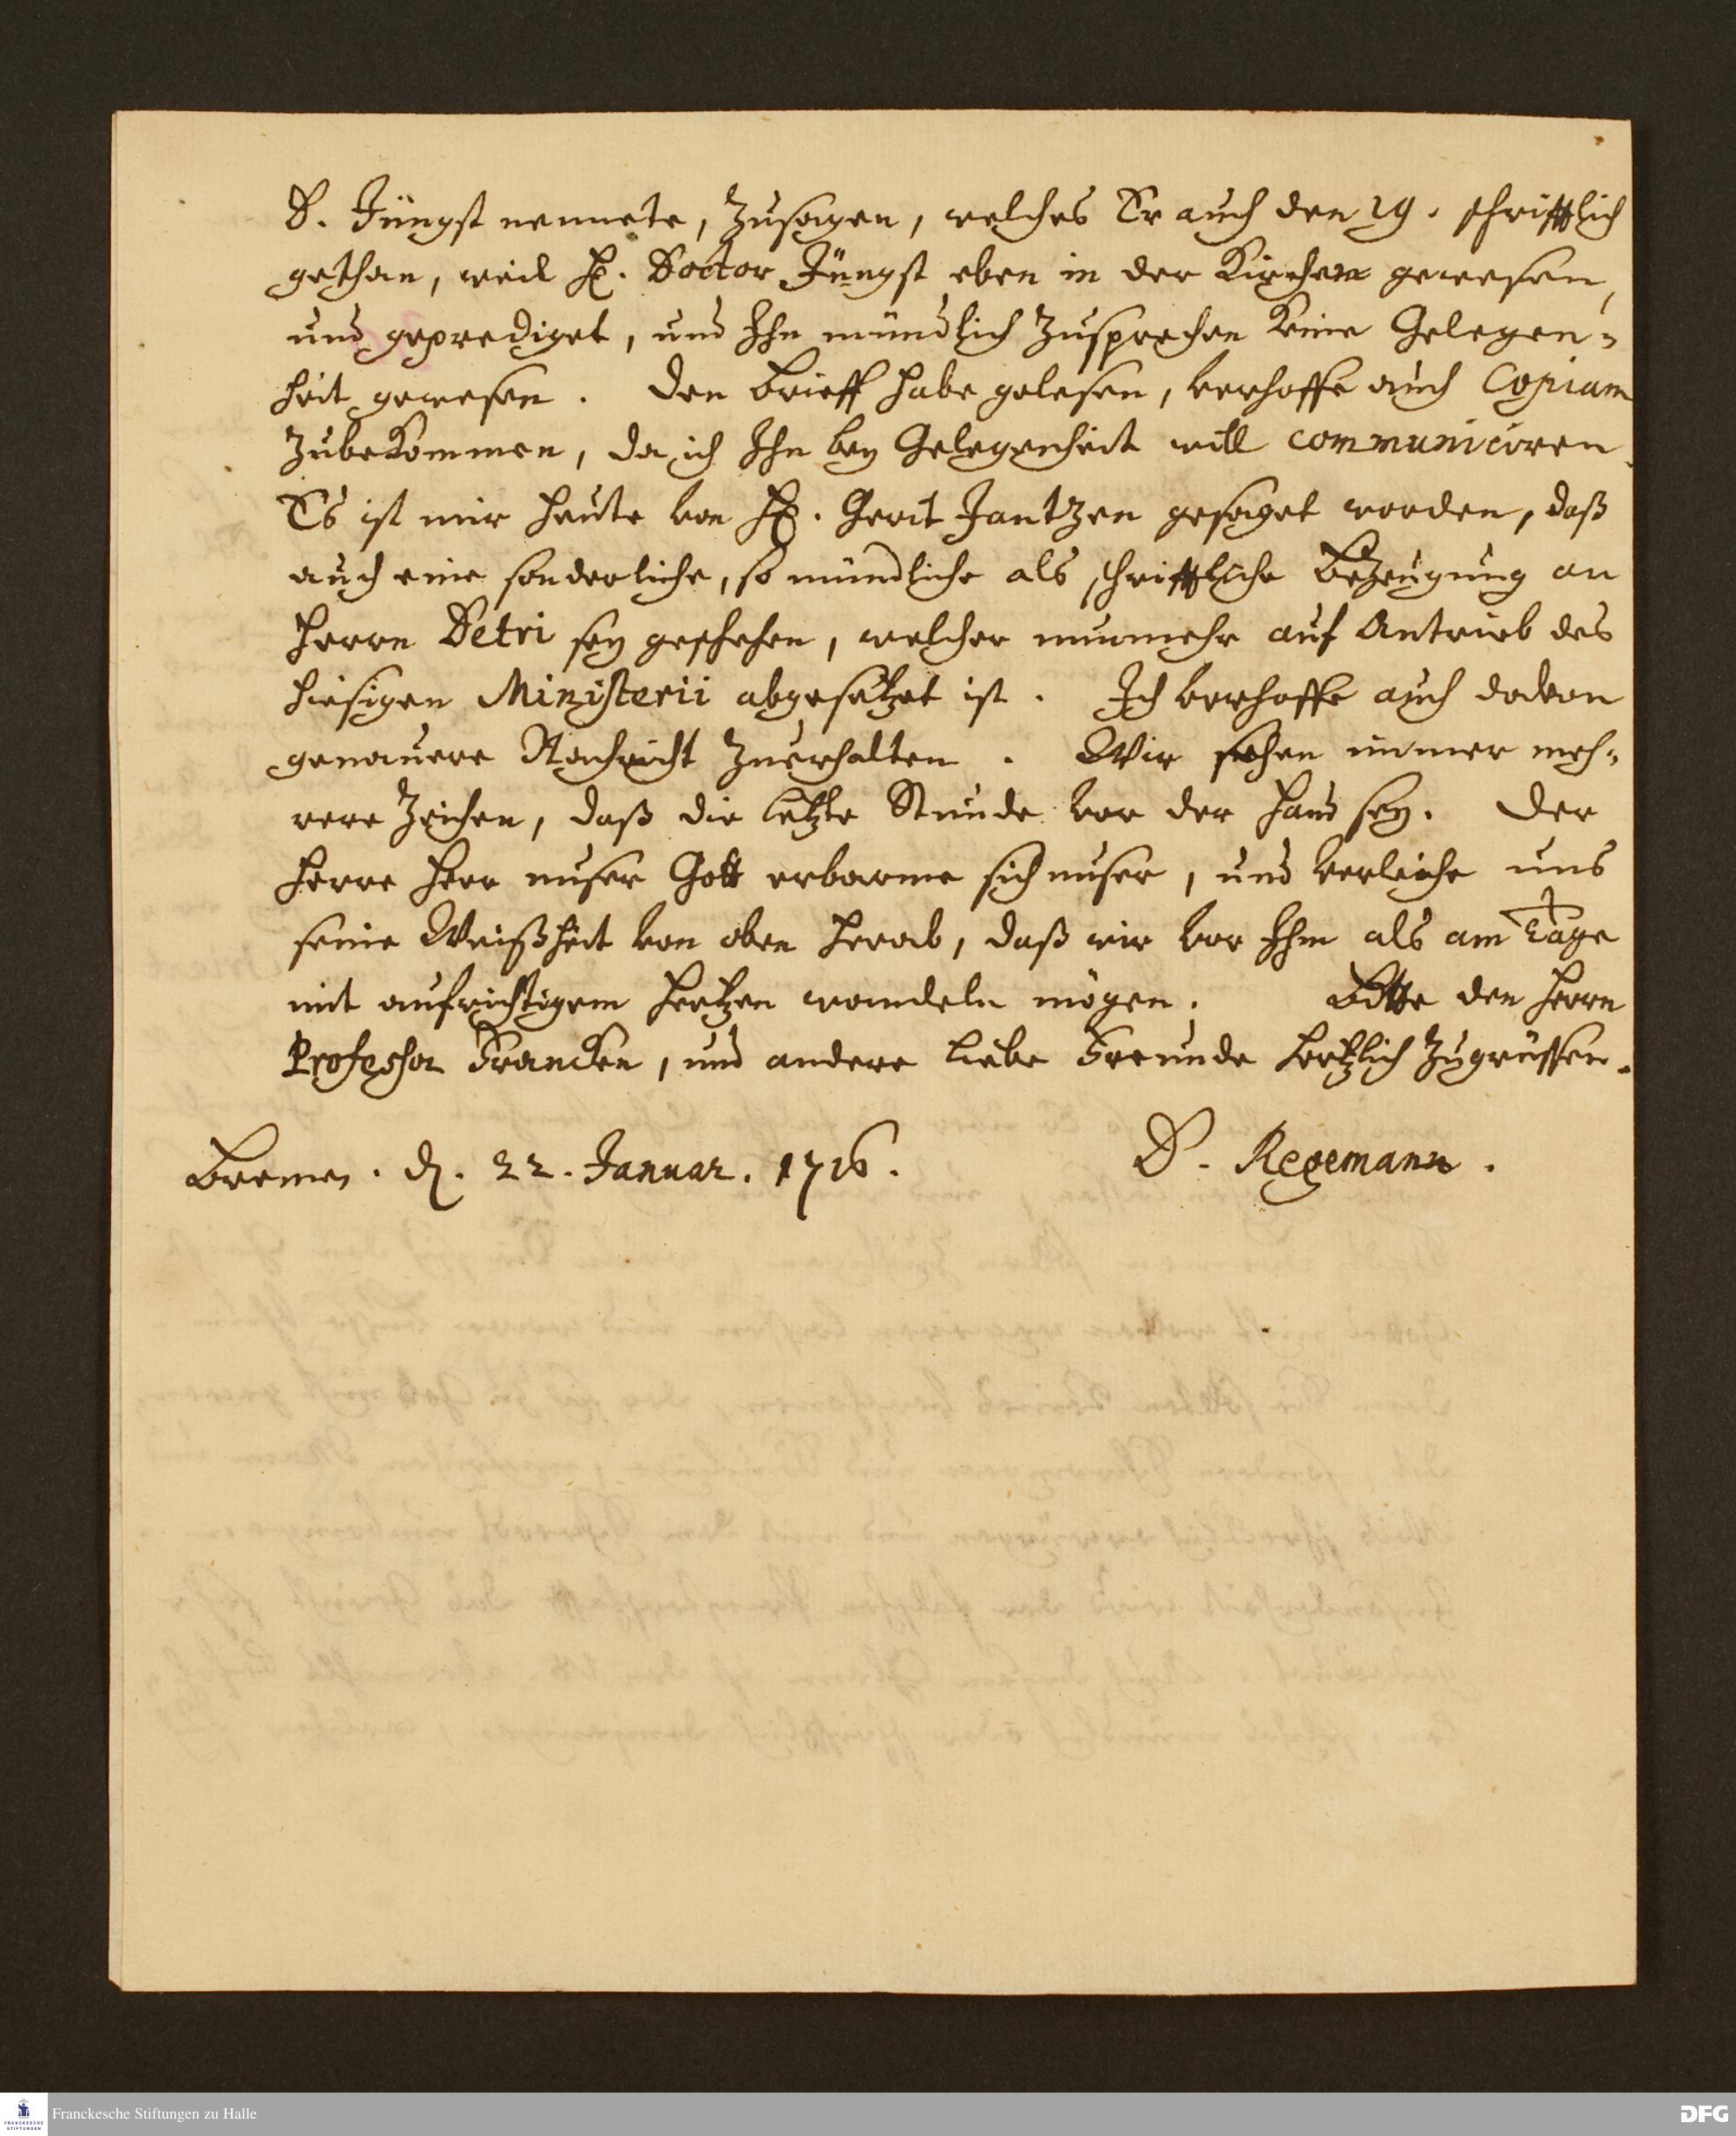 D. Jüngst nennete, zusagen, welches Er auch den 19. schrifftlich
gethan, weil H. Doctor Jüngst eben in der Kirchen gewesen,
und geprediget, und Ihn mündlich zusprechen keine Gelegen-
heit gewesen. Den brieff habe gelesen, verhoffe auch Copiam
zubekommen, da ich Ihn bey Gelegenheit will communiciren.
Es ist mir heute von H. Gerit Jantzen gesaget worden, daß
auch eine sonderliche, so mündliche als schrifftliche Bezeugung an
Herrn Detri sey geschehen, welcher nunmehr auf Antrieb des
hiesigen Ministerii abgesetzet ist. Ich verhoffe auch davon
genauere Nachricht zuerhalten. Wir sehen immer meh-
rere Zeichen, daß die letzte Stunde vor der Hand sey. Der
Herre Herr unser Gott erbarme sich unser, und verleihe uns
seine Weißheit von oben herab, daß wir vor Ihm als am Tage
mit aufrichtigem Hertzen wandeln mögen. Bitte den Herrn
Professor Francken, und andere liebe Freunde hertzlich zugrüssen.
Bremen. d. 22. Januar. 1716. D. Regemann.
Franckesche Stiftungen zu Halle
FRANCKESCHE
STIFTUNGEN
DFG